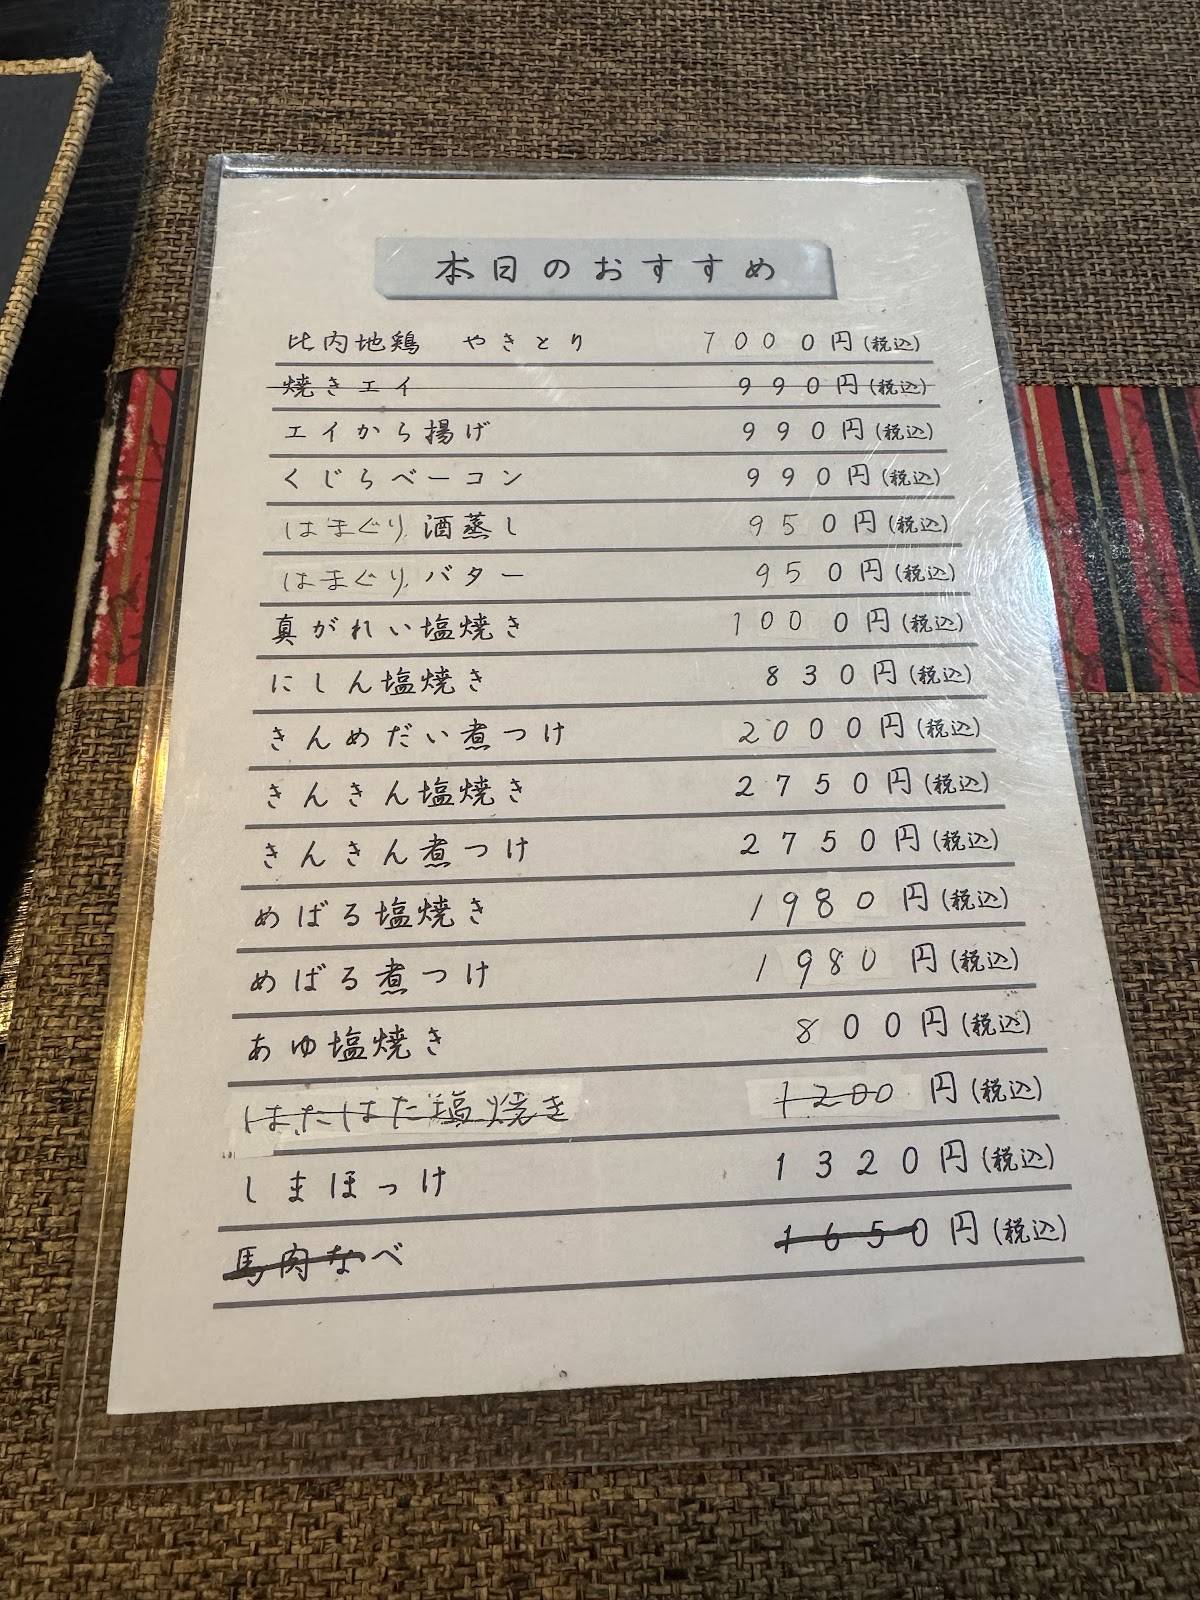 本日のおすすめ
比内地鶏 やきとり 1000円(税込)
焼きエイ 990円(税込)
エイから揚げ 990円(税込)
くじらベーコン 990円(税込)
はまぐり酒蒸し 950円(税込)
はまぐりバター 950円(税込)
真がれい塩焼き 1000円(税込)
にしん塩焼き 830円(税込)
きんめだい煮つけ 2000円(税込)
きんきん塩焼き 2750円(税込)
きんきん煮つけ 2750円(税込)
めばる塩焼き 1980円(税込)
めばる煮つけ 1980円(税込)
あゆ塩焼き 800円(税込)
はたはた塩焼き 1200円(税込)
しまほっけ 1320円(税込)
馬肉なべ 1650円(税込)